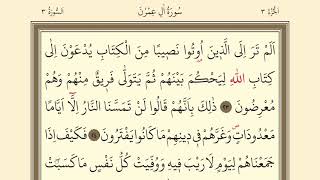 الجزء ٣ سورة آل عمران السورة ٣
أَلَمْ تَرَ إِلَى الَّذِينَ أُوتُوا نَصِيبًا مِنَ الْكِتَابِ يُدْعَوْنَ إِلَى
كِتَابِ اللهِ لِيَحْكُمَ بَيْنَهُمْ ثُمَّ يَتَوَلَّى فَرِيقٌ مِنْهُمْ وَهُمْ
مُعْرِضُونَ ﴿٢٣﴾ ذَلِكَ بِأَنَّهُمْ قَالُوا لَنْ تَمَسَّنَا النَّارُ إِلَّا أَيَّامًا
مَعْدُودَاتٍ وَغَرَّهُمْ فِي دِينِهِمْ مَا كَانُوا يَفْتَرُونَ ﴿٢٤﴾ فَكَيْفَ إِذَا
جَمَعْنَاهُمْ لِيَوْمٍ لَا رَيْبَ فِيهِ وَوُفِّيَتْ كُلُّ نَفْسٍ مَا كَسَبَتْ